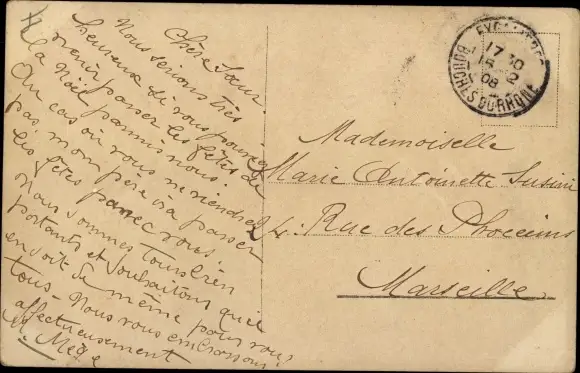 Chère Sœur.
Nous serions très
heureux si vous pouviez
venir passer les fêtes de
la Noël parmis nous.
Au cas où vous ne viendrez
pas, mon père ira passer
les fêtes avec vous.
Nous sommes tous bien
portants et souhaitons qu'il
en soit de même pour vous
tous. Nous vous embrassons
affectueusement
M. Mège
17 30
08
BOUCHES DU RHONE
Mademoiselle
Marie Antoinette Susini
Rue des Phocéens
Marseille